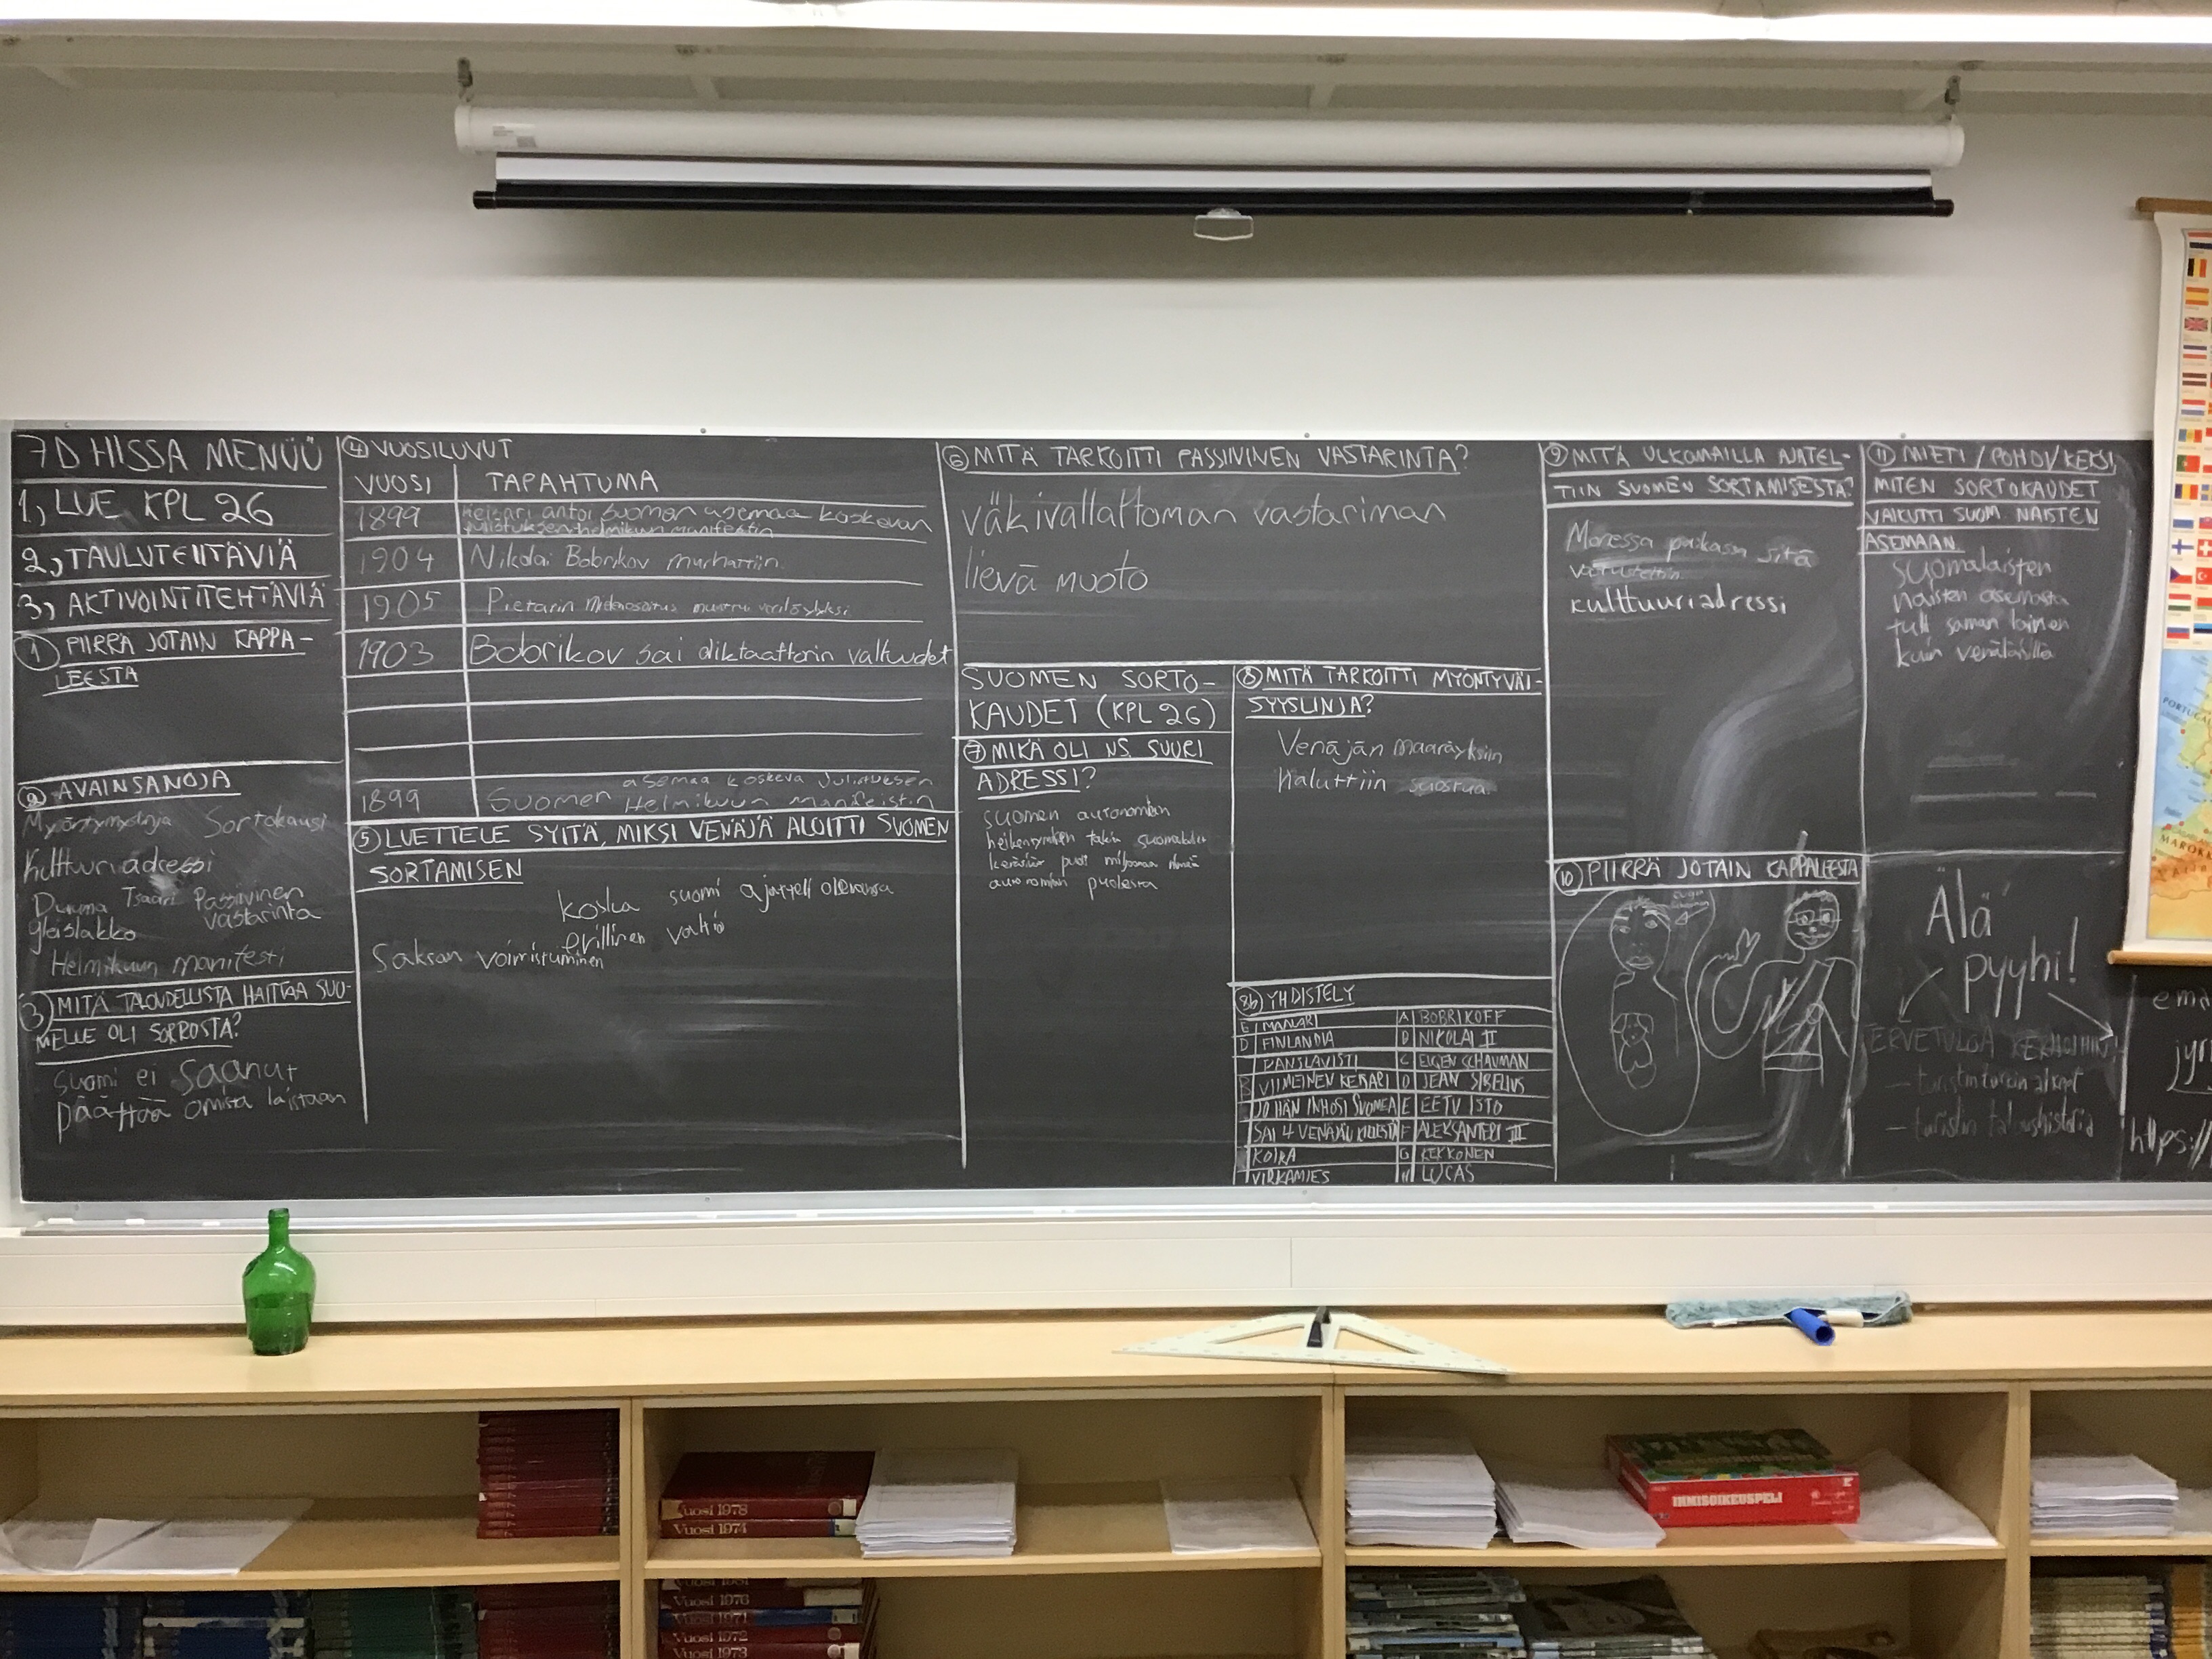 7D HISSA MENÜÜ
1, LUE KPL 26
2, TAULUTEHTÄVIÄ
3, AKTIVOINTITEHTÄVIÄ
① PIIRRÄ JOTAIN KAPPA-
LEESTA
② AVAINSANOJA
Sortokausi
Kulttuuriadressi
Duuma Tsaari Passiivinen
vastarinta
yleislakko
Helmikuun manifesti
③ MITÄ TALOUDELLISTA HAITTAA SUO-
MELLE OLI SORROSTA?
Suomi ei saanut
päättää omista laistaan
④ VUOSILUVUT
VUOSI TAPAHTUMA
1899 Keisari antoi Suomen asemaa koskevan
julistuksen helmikuun manifestin
1904 Nikolai Bobrikov murhattiin.
1905 Pietarin mielenosoitus muuttui verilöylyksi
1903 Bobrikov sai diktaattorin valtuudet
asemaa koskeva Julistuksen
1899 Suomen Helmikuun manifeistin
⑤ LUETTELE SYITÄ, MIKSI VENÄJÄ ALOITTI SUOMEN
SORTAMISEN
koska suomi ajatteli olevansa
erillinen valtio
Saksan voimistuminen
⑥ MITÄ TARKOITTI PASSIIVINEN VASTARINTA?
väkivallattoman vastariman
lievä muoto
SUOMEN SORTO-
KAUDET (KPL 26)
⑦ MIKÄ OLI NS. SUURI
ADRESSI?
suomen autonomian
heikentymisen takia suomalaiset
keräsivät puoli miljoonaa nimeä
autonomian puolesta
⑧ MITÄ TARKOITTI MYÖNTYVÄI-
SYYSLINJA?
Venäjän määräyksiin
haluttiin suostua.
8b) YHDISTELY
E MANARI A BOBRIKOFF
D FINLANDIA B NIKOLAI II
PANSLAVISTI C EUGEN SCHAUMAN
B VIIMEINEN KEISARI D JEAN SIBELIUS
JO HÄN INHOSI SUOMEA E EETU ISTO
SAI 4 VENÄJÄN F ALEKSANTERI III
KOIRA G KEKKONEN
VIRKAMIES H LUCAS
⑨ MITÄ ULKOMAILLA AJATEL-
TIIN SUOMEN SORTAMISESTA?
Monessa paikassa sitä
vastustettiin.
kulttuuriadressi
⑩ PIIRRÄ JOTAIN KAPPALEESTA
⑪ MIETI / POHDI / KEKSI,
MITEN SORTOKAUDET
VAIKUTTI SUOM. NAISTEN
ASEMAAN
suomalaisten
naisten asemasta
tuli saman lainen
kuin venäläisillä
Älä
pyyhi!
TERVETULOA KERHOIHIN!
- turistin turvin alkeet
- turistin taloushistoria
https://
PORTUGAL
MAROKKO
Vuosi 1978
Vuosi 1974
Vuosi 1976
Vuosi 1971
Vuosi 1972
Vuosi 1973
IHMISOIKEUSPELI